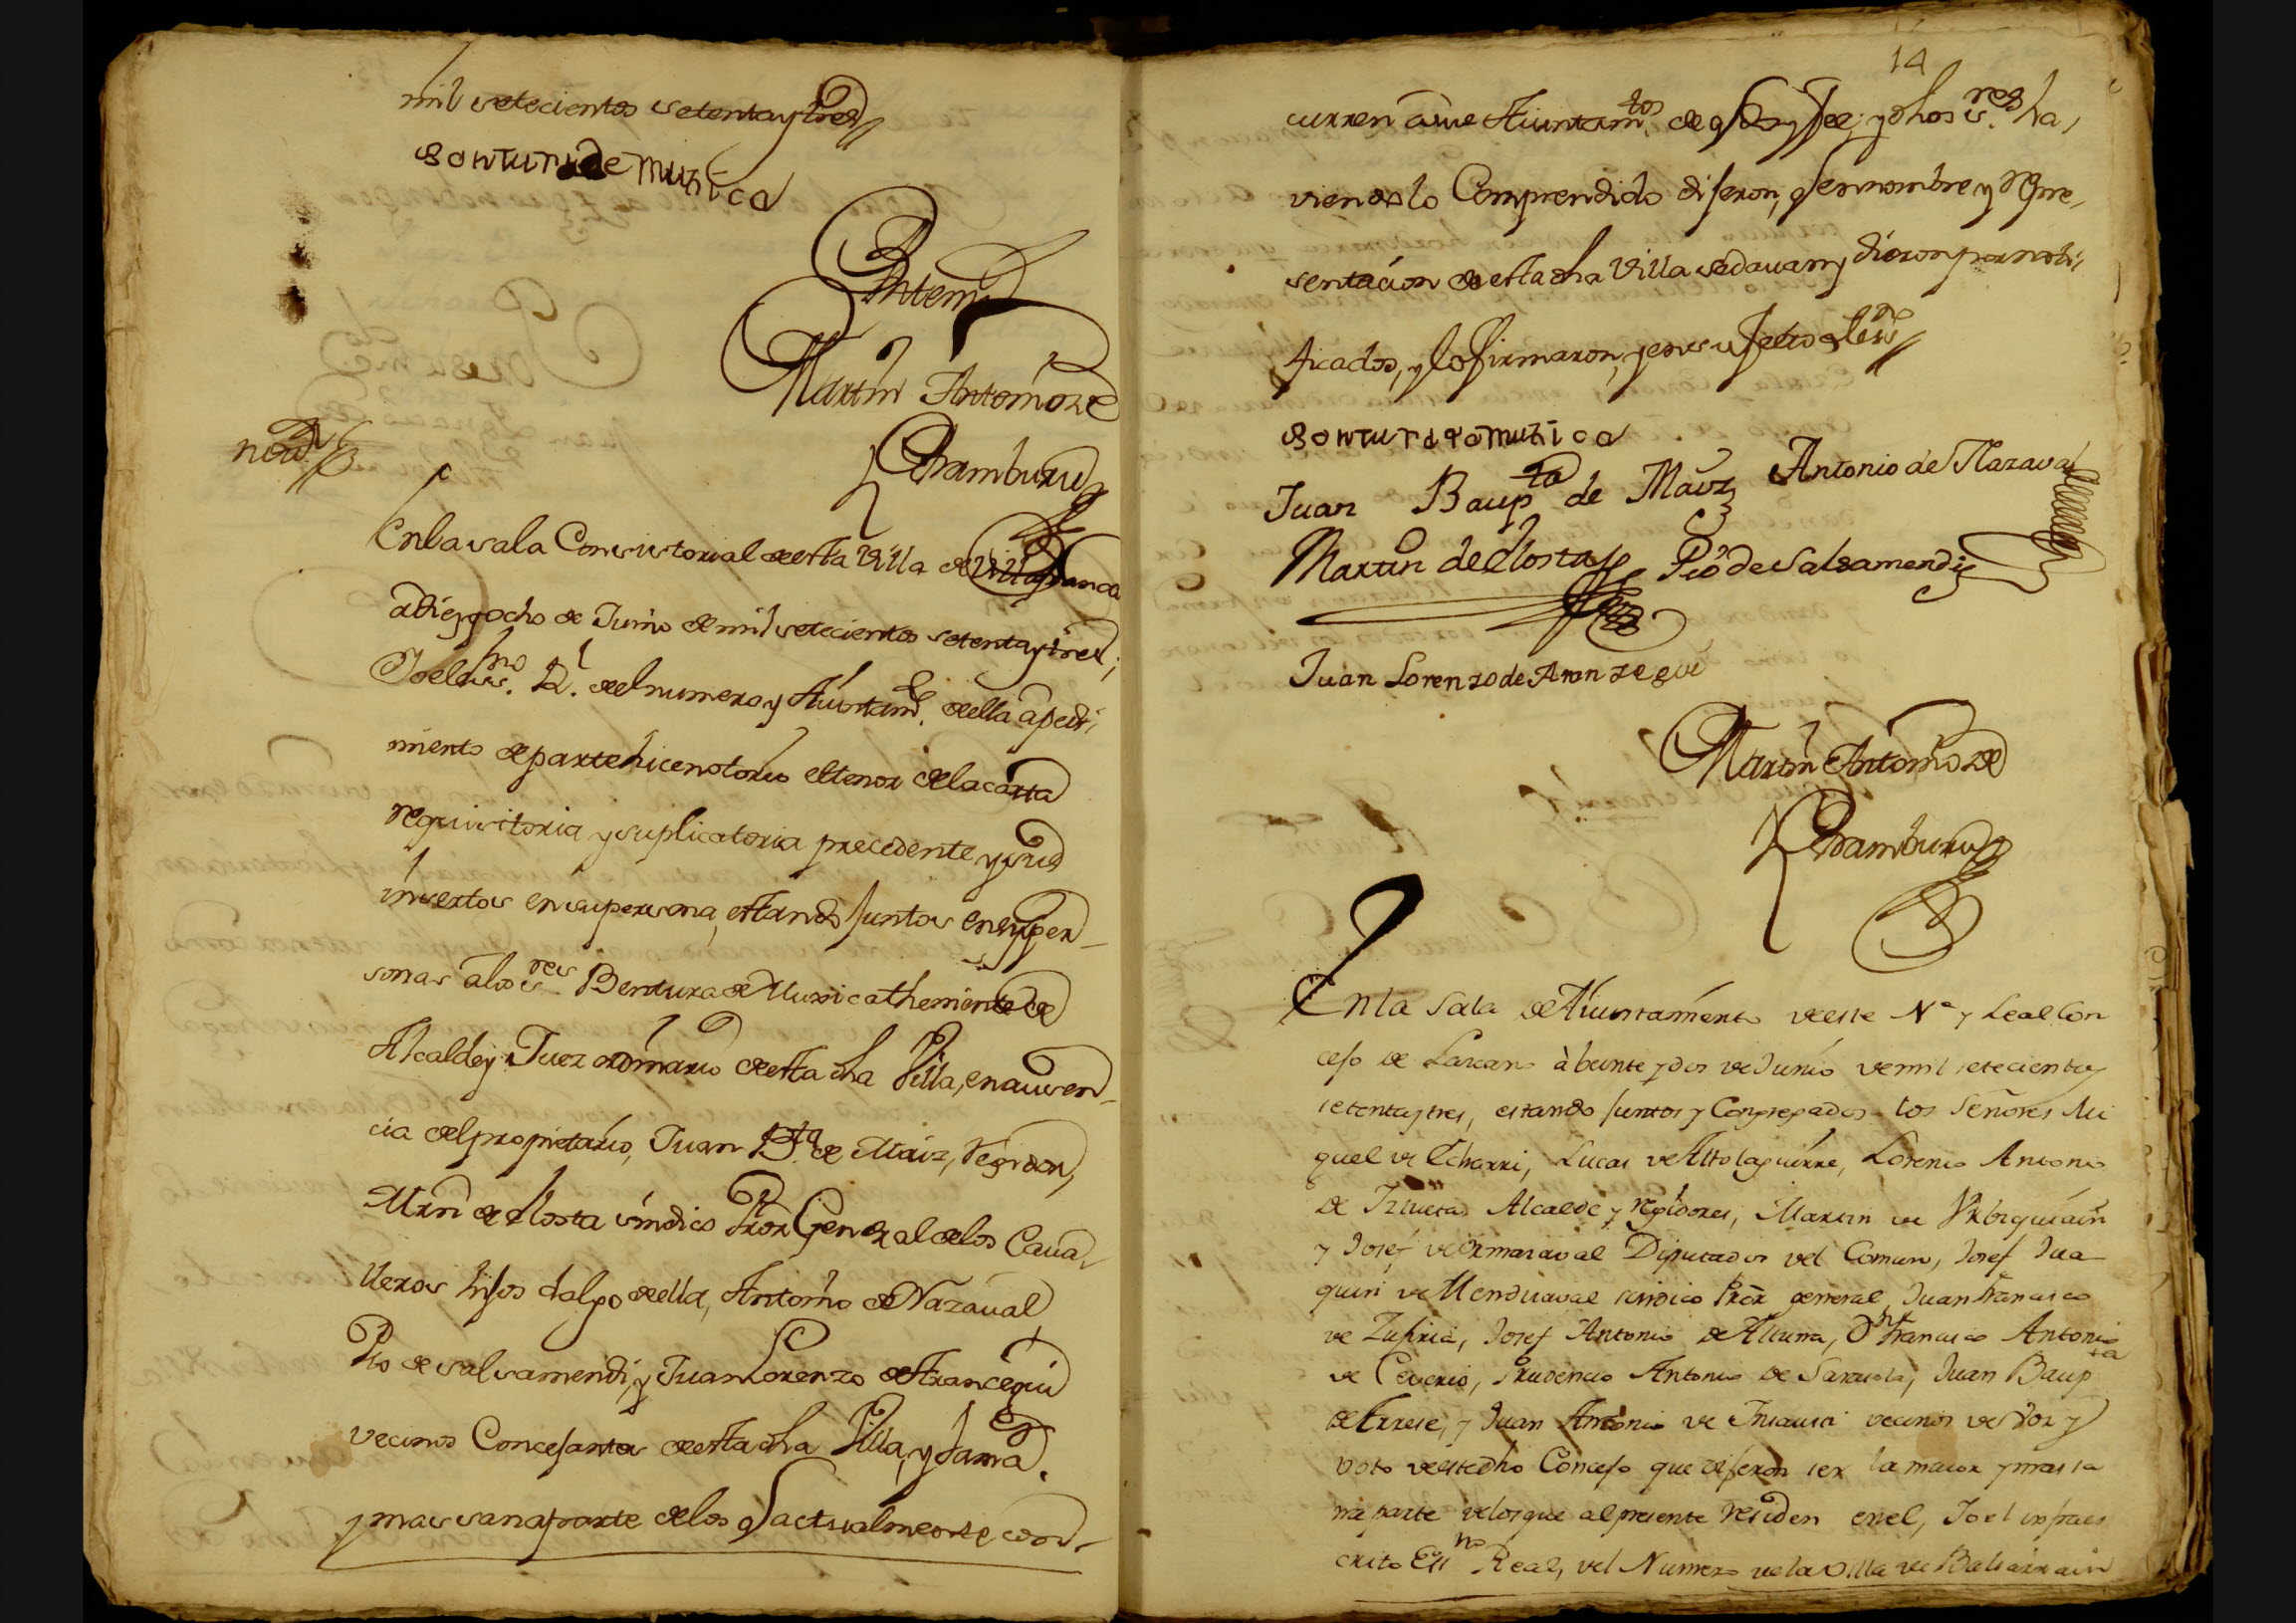 mil setecientos setenta y tres
Bontura de Muxica
Antemi
Martin Antonio de
Aramburu
notn
En la sala Consistorial de esta Villa de Villafranca
a diez y ocho de Junio de mil setecientos setenta y tres,
Yo el dho ssno. Rl. del numero y Aiuntamto. de ella a pedi
miento de parte hice notorio el tenor de la carta
requisitoria y suplicatoria precedente y sus
insertos en su persona, estando juntos en sus per-
sonas a los sres. Bentura de Muxica theniente de
Alcalde y Juez ordinario de esta dha Villa, en ausen-
cia del propietario, Juan Bta. de Maiz, regidor,
Mrn de Elosta sindico Pror General de los Cava-
lleros hijos dalgo de ella, Antonio de Nazaval
Pio de Salsamendi, y Juan Lorenzo de Arancegui
vecinos Concejantes de esta dha Villa, y Sama.
y mas sana parte de los q actualmente con-
14
curren a sus Aiuntamtos. de q doy fee; y dhos sres. ha,
viendolo Comprendido dijeron, q en nombre y repre,
sentacion de esta dha Villa se davan y dieron por noti,
ficados, y lo firmaron, y en su fee yo el ssno
Bontura de Muxica
Juan Baupta de Maiz Antonio de Nazaval
Martin de Elosta Pio de Salsamendi
Juan Lorenzo de Aranzegui
Martin Antonio de
Aramburu
En la Sala de Aiuntamiento de este Ne y Leal Con
cejo de Lazcano à beinte y dos de Junio de mil setecientos y
setenta y tres, estando juntos y Congregados los Señores Mi
guel de Echarri, Lucas de Altolaguirre, Lorenzo Antonio
de Iztueta Alcalde y regidores, Martin de Urbizuiain
y Josef de Ormazaval Diputados del Comun, Josef Jua
quin de Mendizaval sindico Pror general, Juan Francisco
de Zufiria, Josef Antonio de Altuna, Dn Francisco Antonio
de Ceverio, Prudencio Antonio de Sarasola, Juan Baupta
de Arrese, y Juan Antonio de Insausti vecinos de voz y
voto de este dho Concejo que dijeron ser la maior y mas sa
na parte de los que al presente residen en el, Yo el infraes
crito Essno Real, del Numero de la Villa de Baliarrain